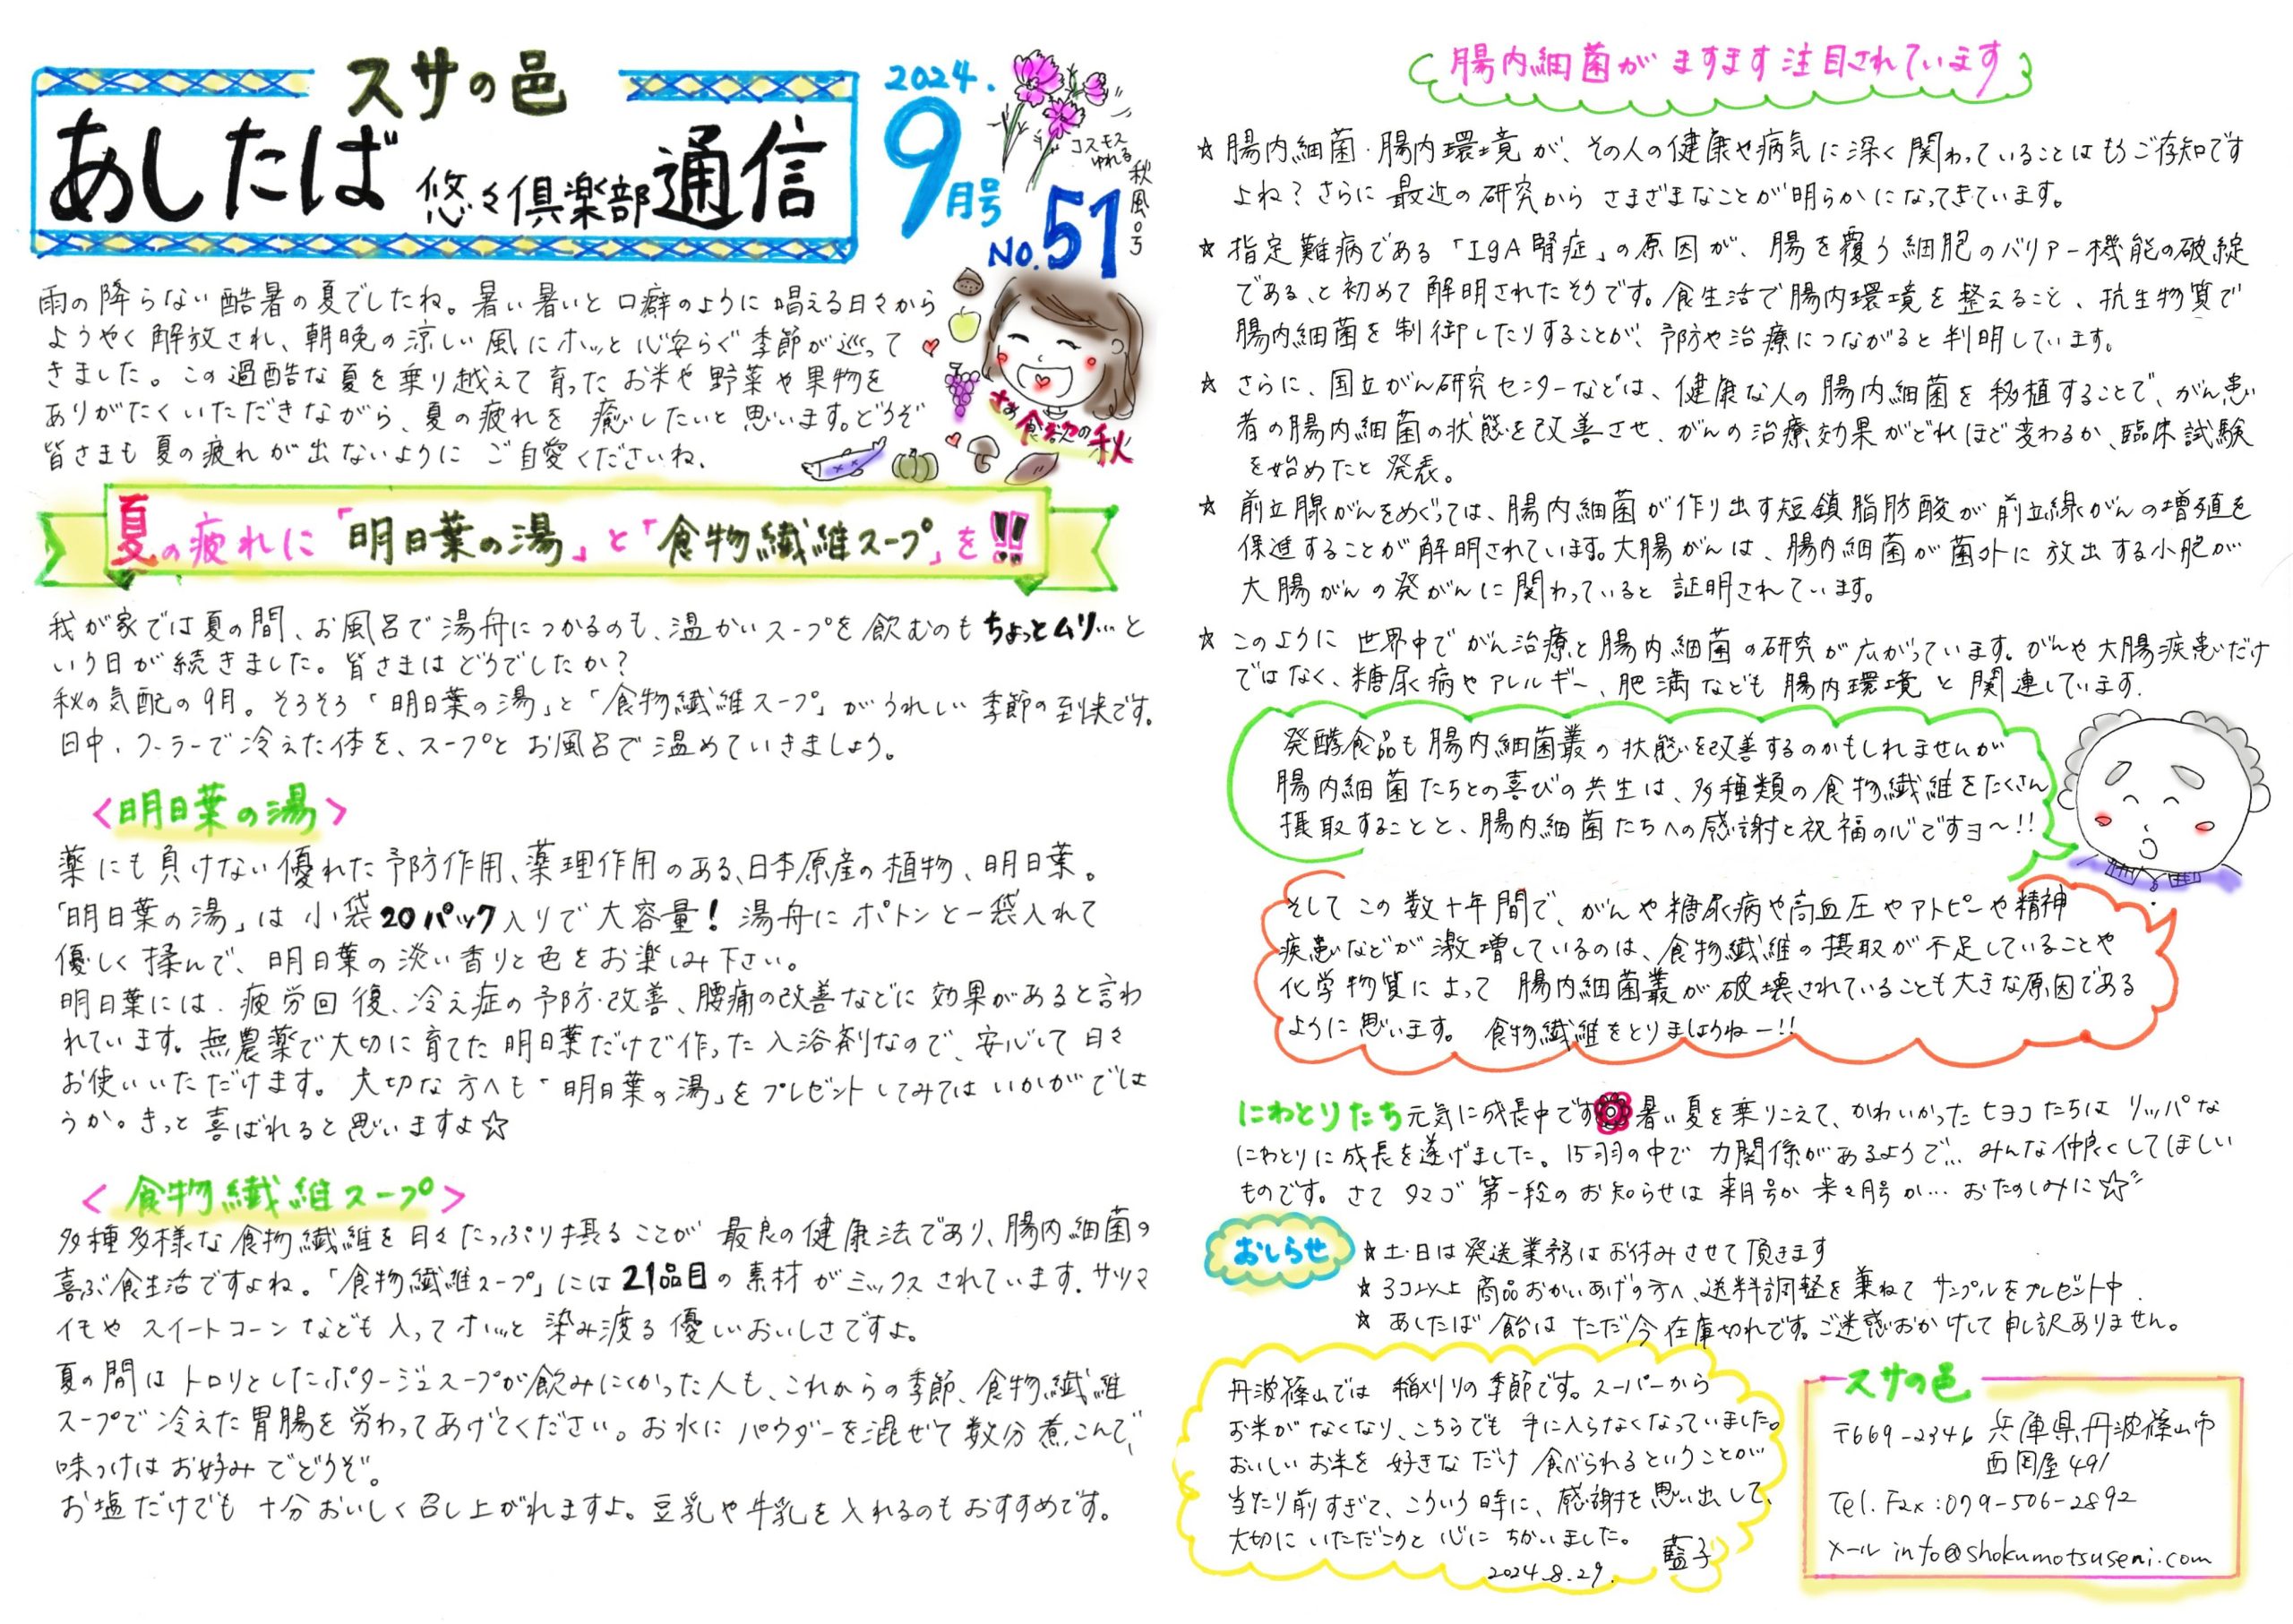 スサの邑
あしたば 悠々倶楽部 通信
2024.
9月号
No.51
コスモス
ゆれる
秋風の3
雨の降らない酷暑の夏でしたね。暑い暑いと口癖のように唱える日々から
ようやく解放され、朝晩の涼しい風にホッと心安らぐ季節が巡って
きました。この過酷な夏を乗り越えて育ったお米や野菜や果物を
ありがたくいただきながら、夏の疲れを癒したいと思います。どうぞ
皆さまも夏の疲れが出ないようにご自愛くださいね。
さぁ
食欲の秋
夏の疲れに「明日葉の湯」と「食物繊維スープ」を!!
我が家では夏の間、お風呂で湯舟につかるのも、温かいスープを飲むのもちょっとムリ…と
いう日が続きました。皆さまはどうでしたか?
秋の気配の9月。そろそろ「明日葉の湯」と「食物繊維スープ」がうれしい季節の到来です。
日中、クーラーで冷えた体を、スープとお風呂で温めていきましょう。
<明日葉の湯>
薬にも負けない優れた予防作用、薬理作用のある、日本原産の植物、明日葉。
「明日葉の湯」は小袋20パック入りで大容量!湯舟にポトンと一袋入れて
優しく揉んで、明日葉の淡い香りと色をお楽しみ下さい。
明日葉には、疲労回復、冷え症の予防・改善、腰痛の改善などに効果があると言わ
れています。無農薬で大切に育てた明日葉だけで作った入浴剤なので、安心して日々
お使いいただけます。大切な方へも「明日葉の湯」をプレゼントしてみてはいかがでしょ
うか。きっと喜ばれると思いますよ☆
<食物繊維スープ>
多種多様な食物繊維を日々たっぷり摂ることが最良の健康法であり、腸内細菌の
喜ぶ食生活ですよね。「食物繊維スープ」には21品目の素材がミックスされています。サツマ
イモやスイートコーンなども入ってホッと染み渡る優しいおいしさですよ。
夏の間はトロリとしたポタージュスープが飲みにくかった人も、これからの季節、食物繊維
スープで冷えた胃腸を労わってあげてください。お水にパウダーを混ぜて数分煮こんで、
味つけはお好みでどうぞ。
お塩だけでも十分おいしく召し上がれますよ。豆乳や牛乳を入れるのもおすすめです。
腸内細菌がますます注目されています
☆腸内細菌・腸内環境が、その人の健康や病気に深く関わっていることはもうご存知です
よね?さらに最近の研究からさまざまなことが明らかになってきています。
☆指定難病である「IgA腎症」の原因が、腸を覆う細胞のバリアー機能の破綻
である、と初めて解明されたそうです。食生活で腸内環境を整えること、抗生物質で
腸内細菌を制御したりすることが、予防や治療につながると判明しています。
☆さらに、国立がん研究センターなどは、健康な人の腸内細菌を移植することで、がん患
者の腸内細菌の状態を改善させ、がんの治療効果がどれほど変わるか、臨床試験
を始めたと発表。
☆前立腺がんをめぐっては、腸内細菌が作り出す短鎖脂肪酸が前立線がんの増殖を
促進することが解明されています。大腸がんは、腸内細菌が菌外に放出する小胞が
大腸がんの発がんに関わっていると証明されています。
☆このように世界中でがん治療と腸内細菌の研究が広がっています。がんや大腸疾患だけ
ではなく、糖尿病やアレルギー、肥満なども腸内環境と関連しています。
発酵食品も腸内細菌叢の状態を改善するのかもしれませんが
腸内細菌たちとの喜びの共生は、多種類の食物繊維をたくさん
摂取することと、腸内細菌たちへの感謝と祝福の心ですヨ〜!!
そしてこの数十年間で、がんや糖尿病や高血圧やアトピーや精神
疾患などが激増しているのは、食物繊維の摂取が不足していることや
化学物質によって腸内細菌叢が破壊されていることも大きな原因である
ように思います。食物繊維をとりましょうねー!!
にわとりたち元気に成長中です 暑い夏を乗りこえて、かわいかったヒヨコたちはリッパな
にわとりに成長を遂げました。15羽の中で力関係があるようで…みんな仲良くしてほしい
ものです。さてタマゴ第一段のお知らせは来月号か来々月号か…おたのしみに☆
おしらせ
☆土・日は発送業務はお休みさせて頂きます
☆3コ以上商品おかいあげの方へ、送料調整を兼ねてサンプルをプレゼント中.
☆あしたば飴はただ今在庫切れです。ご迷惑おかけして申し訳ありません。
丹波篠山では稲刈りの季節です。スーパーから
お米がなくなり、こちらでも手に入らなくなっていました。
おいしいお米を好きなだけ食べられるということが
当たり前すぎて、こういう時に、感謝を思い出して、
大切にいただこうと心にちかいました。
藍子
2024.8.29.
スサの邑
〒669-2346 兵庫県丹波篠山市
西岡屋491
Tel.Fax:079-506-2892
メール info@shokumotsuseni.com